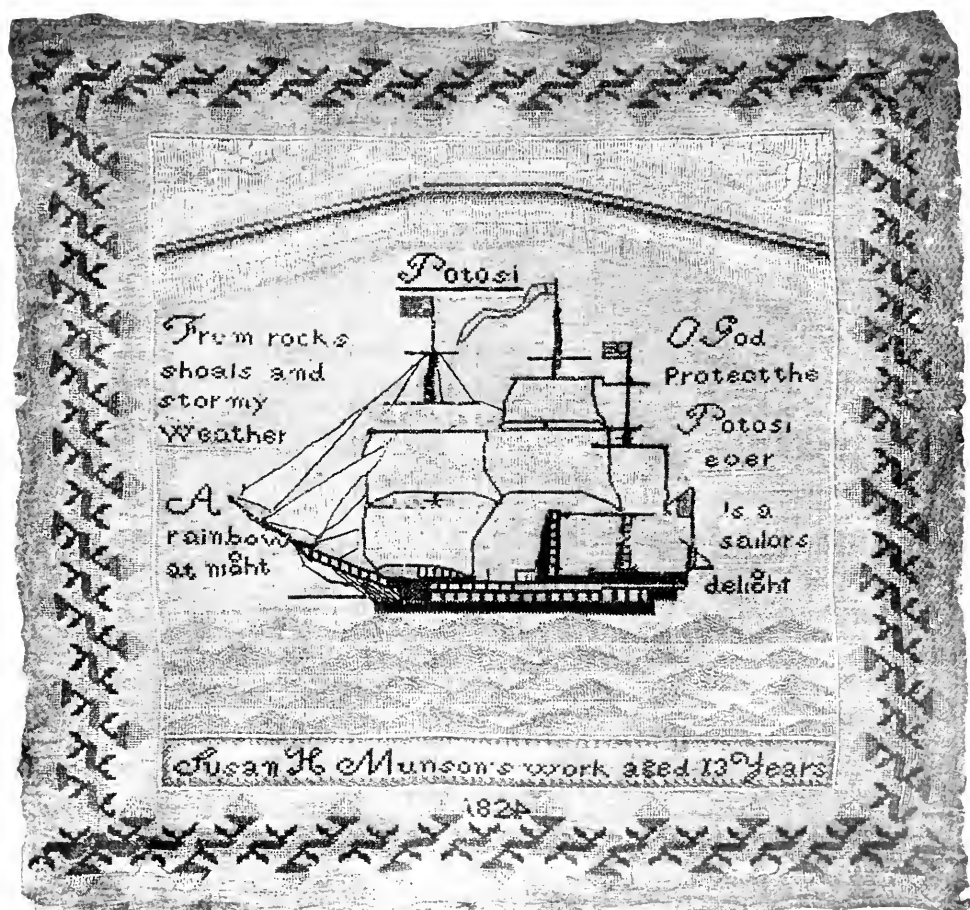 Potosi
From rocks
shoals and
stormy
Weather
O God
Protect the
Potosi
ever
A
rainbow
at night
Is a
sailors
delight
Susan H Munson's work aged 13 Years
1824